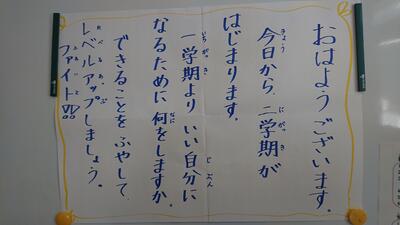 おはようございます。
今日から二学期が
はじまります。
一学期よりいい自分に
なるために何をしますか。
できることをふやして
レベルアップしましょう。
ファイト!!